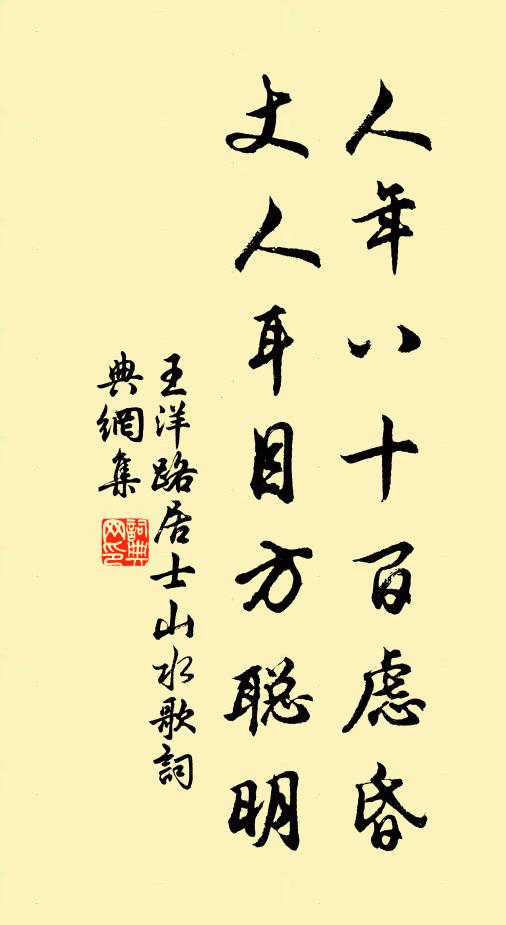 人年八十百慮昏
丈人耳目方聪明
王洋路居士山水歌詞
典網集
詞典
网印